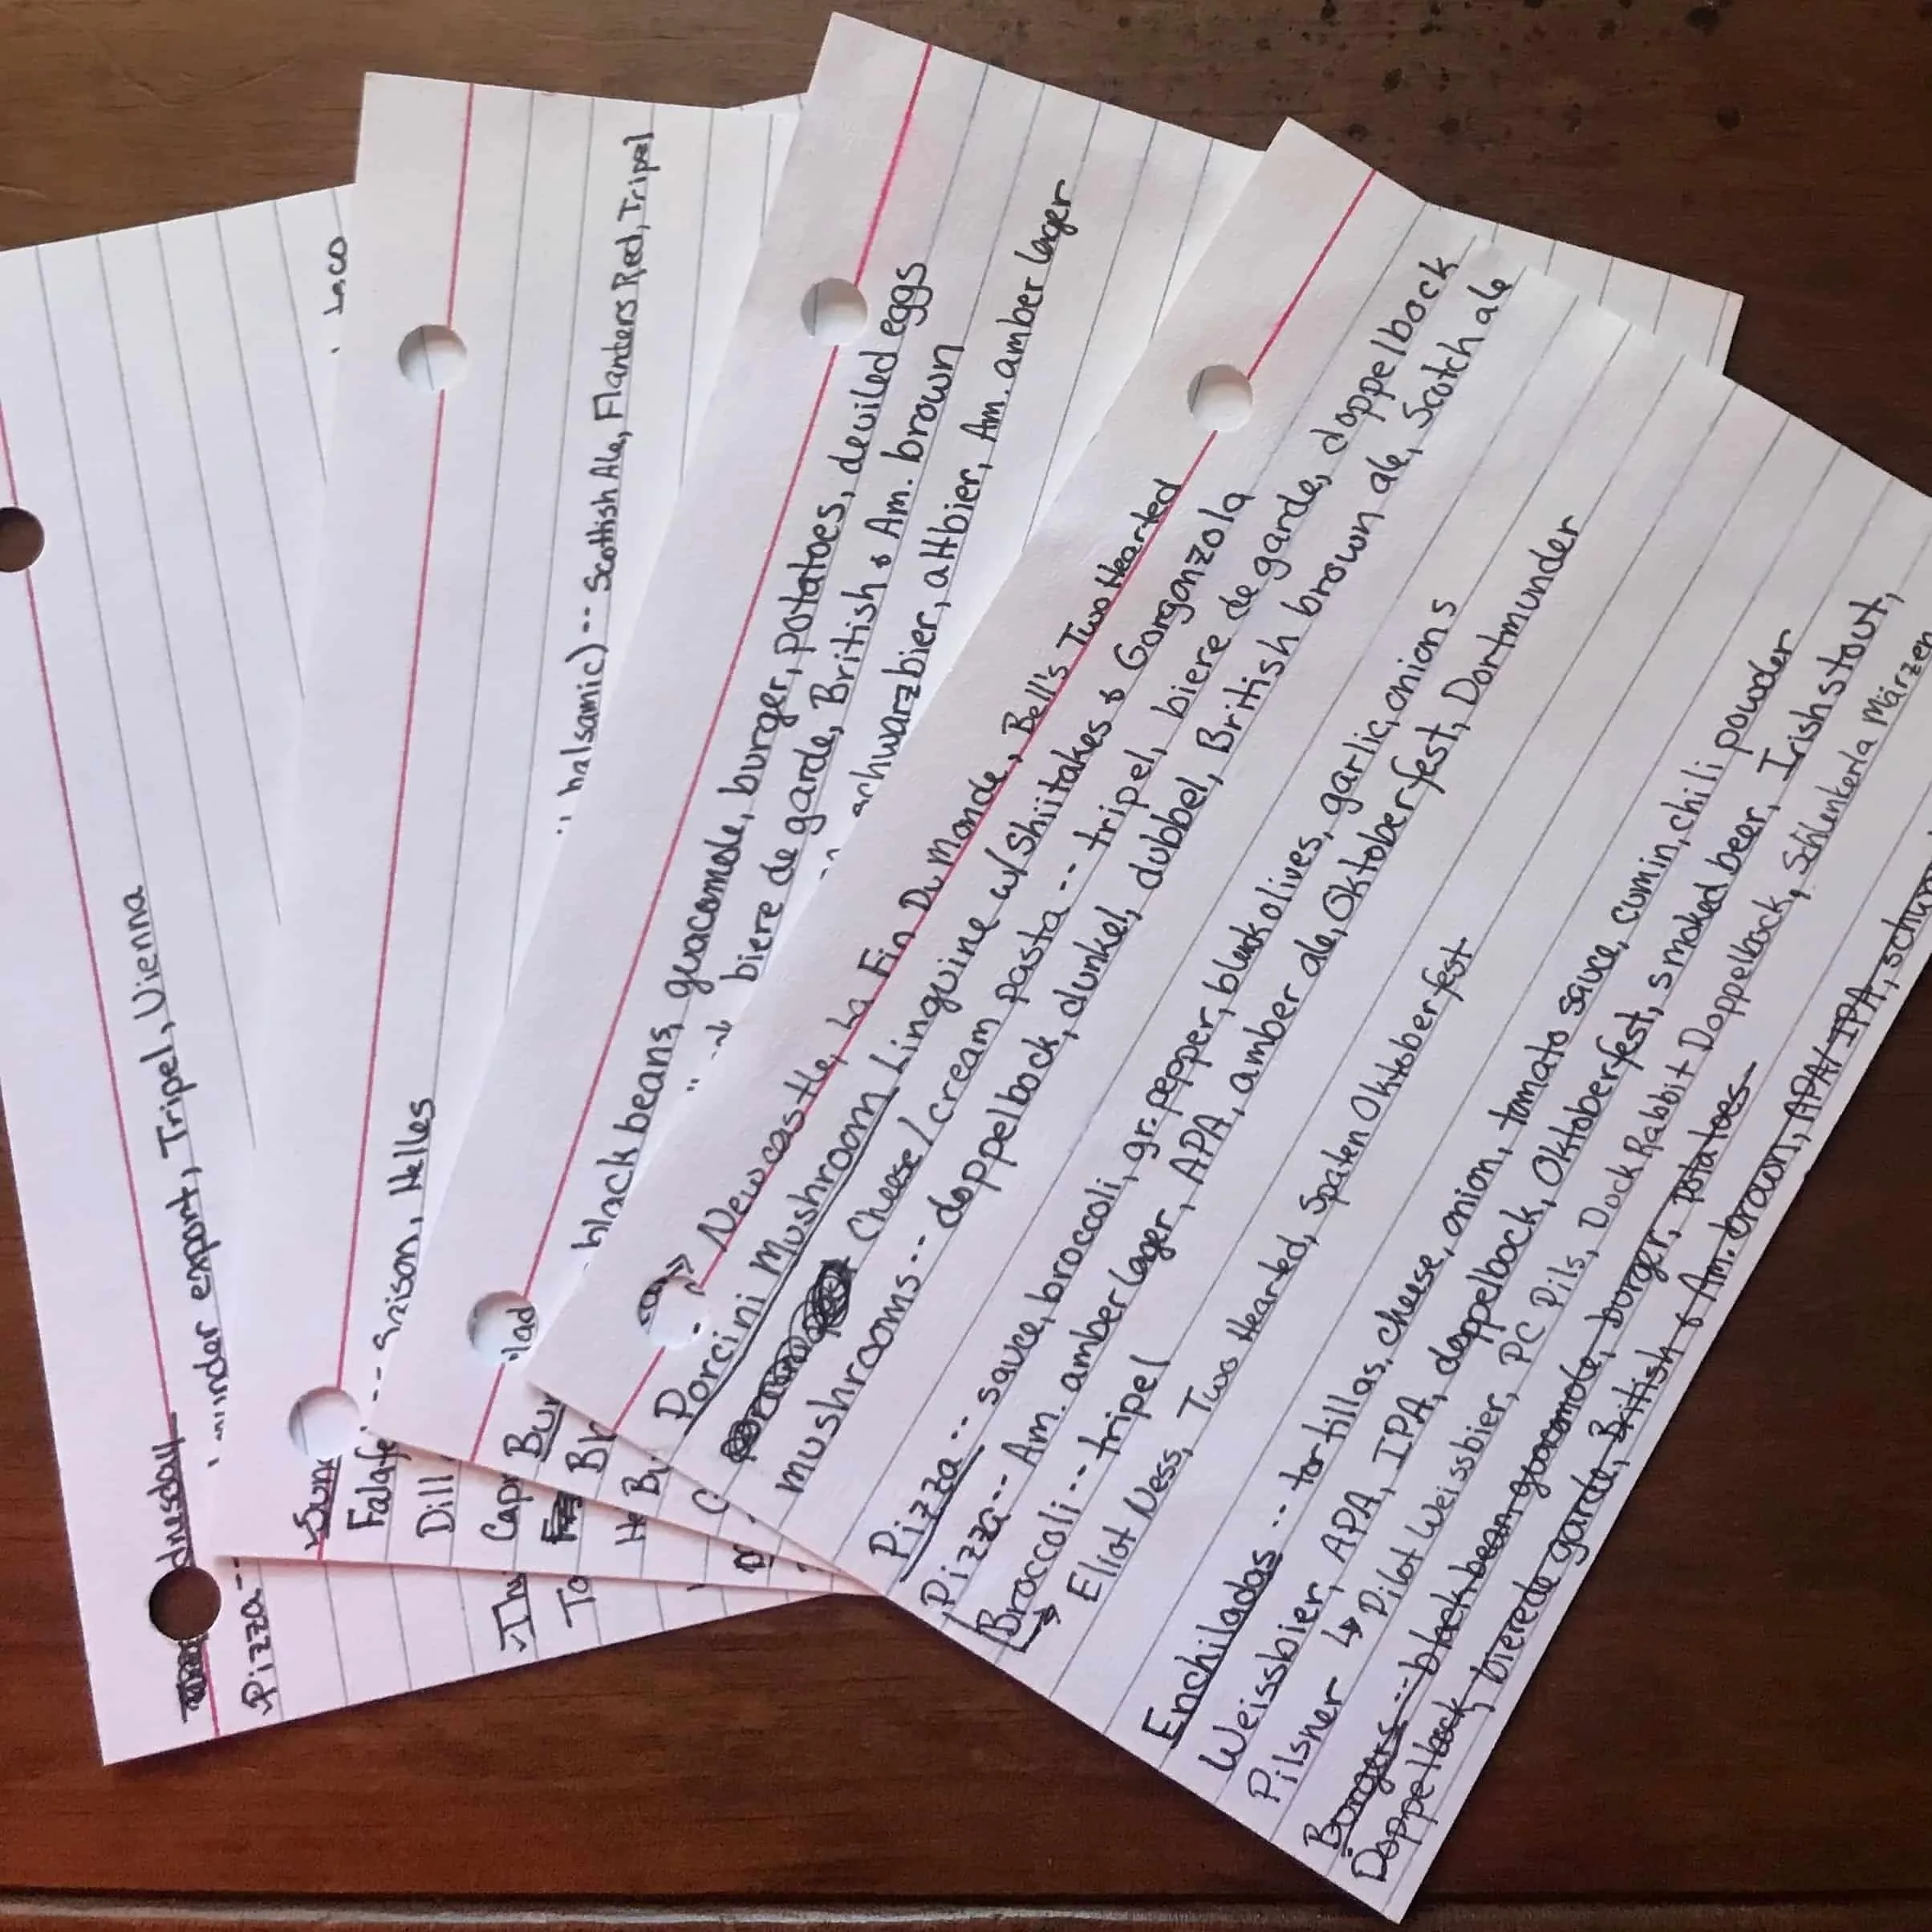 dnesday
under export, Tripel, Vienna
Pizza--
Sun
Falafe
-- Saison, Helles
Dill
balsamic)-- Scottish Ale, Flanders Red, Tripel
Thu
To
lad
Bur
black beans, guacamole, burger, potatoes, deviled eggs
biere de garde, British & Am. brown
schwarzbier, altbier, Am. amber lager
Newcastle, La Fin Du Monde, Bell's Two Hearted
Porcini Mushroom Linguine w/ Shiitakes & Gorganzola
Cheese/cream pasta -- tripel, biere de garde, doppelbock
mushrooms -- doppelbock, dunkel, dubbel, British brown ale, Scotch ale
Pizza -- sauce, broccoli, gr. pepper, black olives, garlic, onions
Pizza -- Am. amber lager, APA, amber ale, Oktoberfest, Dortmunder
Broccoli -- tripel
→ Eliot Ness, Two Hearted, Spaten Oktoberfest
Enchiladas -- tortillas, cheese, onion, tomato sauce, cumin, chili powder
Weissbier, APA, IPA, doppelbock, Oktoberfest, smoked beer, Irish stout,
Pilsner ↳ Pilot Weissbier, PC Pils, Duck Rabbit Doppelbock, Schlenkerla Märzen
Burgers -- black bean, guacamole, burger, potatoes
Doppelbock, biere de garde, British & Am. brown, APA/IPA, schw